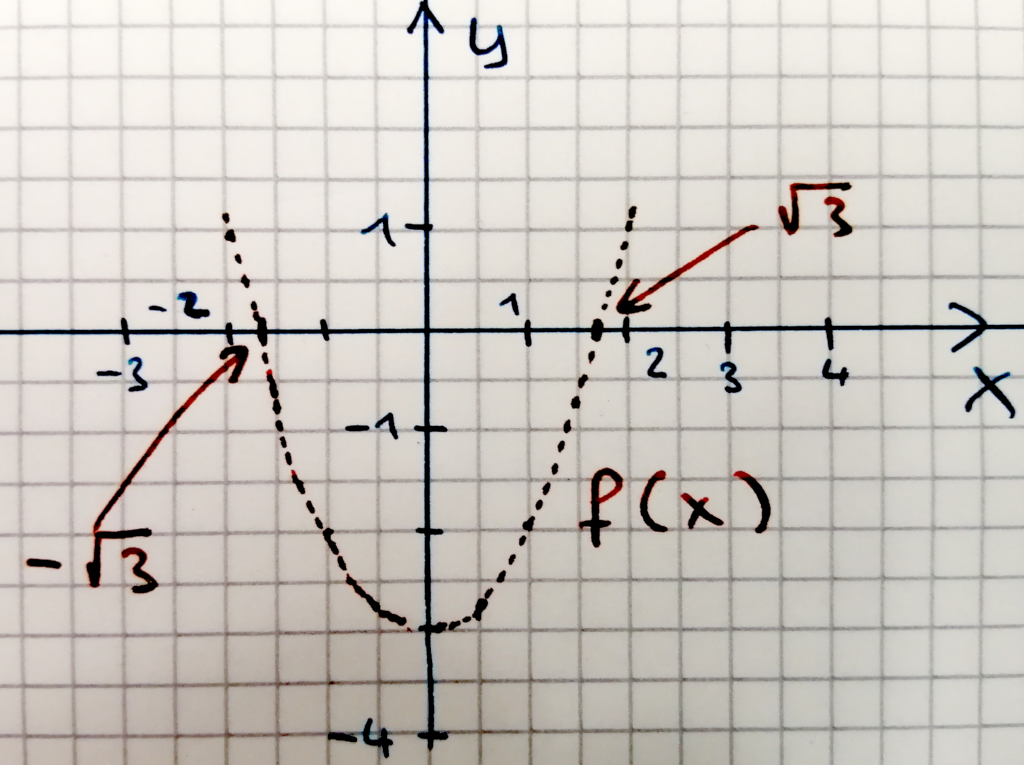 y
√3
1
-2
1
-3
2
3
4
x
-1
f(x)
-√3
-4